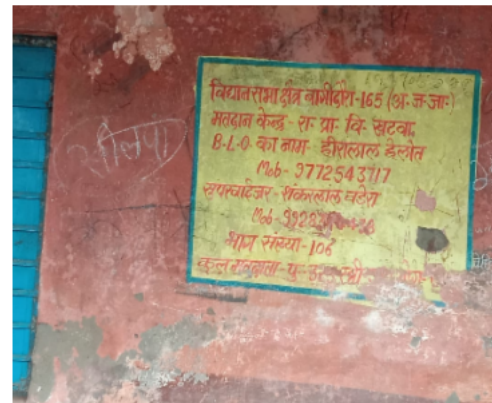 विधानसभा क्षेत्र बागीदौरा-165 (अ.ज.जा.)
मतदान केन्द्र- रा. प्रा. वि. खटवा,
B-L-O. का नाम- हीरालाल डेलोत
Mob- 9772543717
सुपरवाईजर- शंकरलाल
Mob-
भाग संख्या-106
कुल मतदाता- पु.